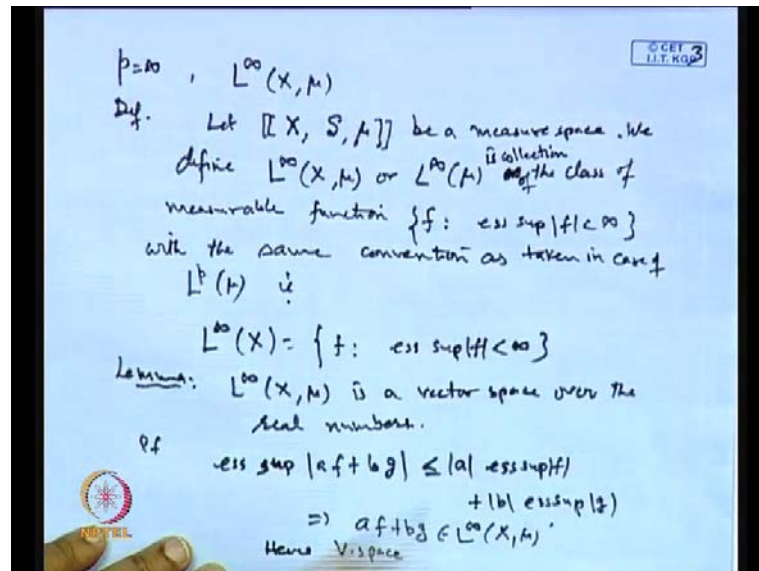 © CET
I.I.T. KGP 3
p=∞ , L^∞(X,μ)
Def. Let [[X, S, μ]] be a measure space. We
define L^∞(X,μ) or L^∞(μ) is collection of the class of
measurable function {f: ess sup|f|<∞}
with the same convention as taken in case of
L^p(μ) ie
L^∞(X) = {f: ess sup|f|<∞}
Lemma: L^∞(X,μ) is a vector space over the
real numbers.
Pf
ess sup |af+bg| ≤ |a| ess sup|f|
+ |b| ess sup|g|
⇒ af+bg ∈ L^∞(X,μ).
Hence V. space
NPTEL